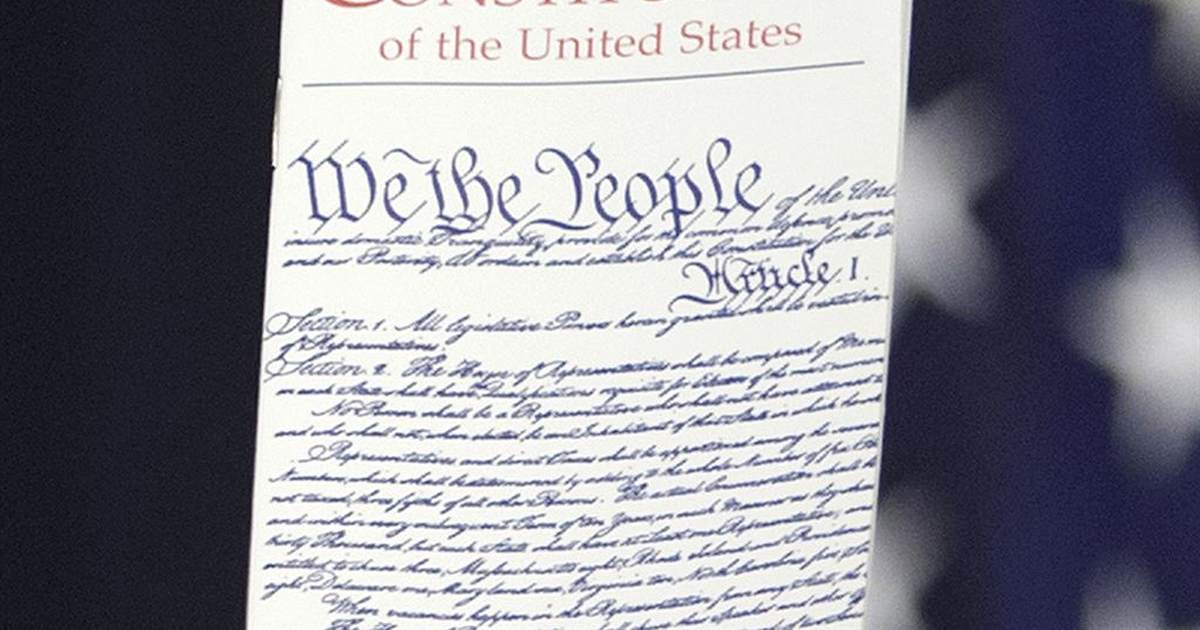 of the United States
We the People of the Uni
insure domestic Tranquility, provide for the common defence, promo
and our Posterity, do ordain and establish this Constitution for the U
Article I.
Section 1. All legislative Powers herein granted shall be vested in
of Representatives.
Section 2. The House of Representatives shall be composed of Mem
in each State shall have Qualifications requisite for Electors of the most numerou
No Person shall be a Representative who shall not have attained t
and who shall not, when elected, be an Inhabitant of that State in which he shall
Representatives and direct Taxes shall be apportioned among the several
Numbers, which shall be determined by adding to the whole Number of free
not taxed, three fifths of all other Persons. The actual Enumeration shall be
and within every subsequent Term of ten Years, in such Manner as they shall
thirty Thousand, but each State shall have at Least one Representative; and
entitled to chuse three, Massachusetts eight, Rhode Island and Providence
eight, Delaware one, Maryland six, Virginia ten, North Carolina five,
When vacancies happen in the Representation from any State, the